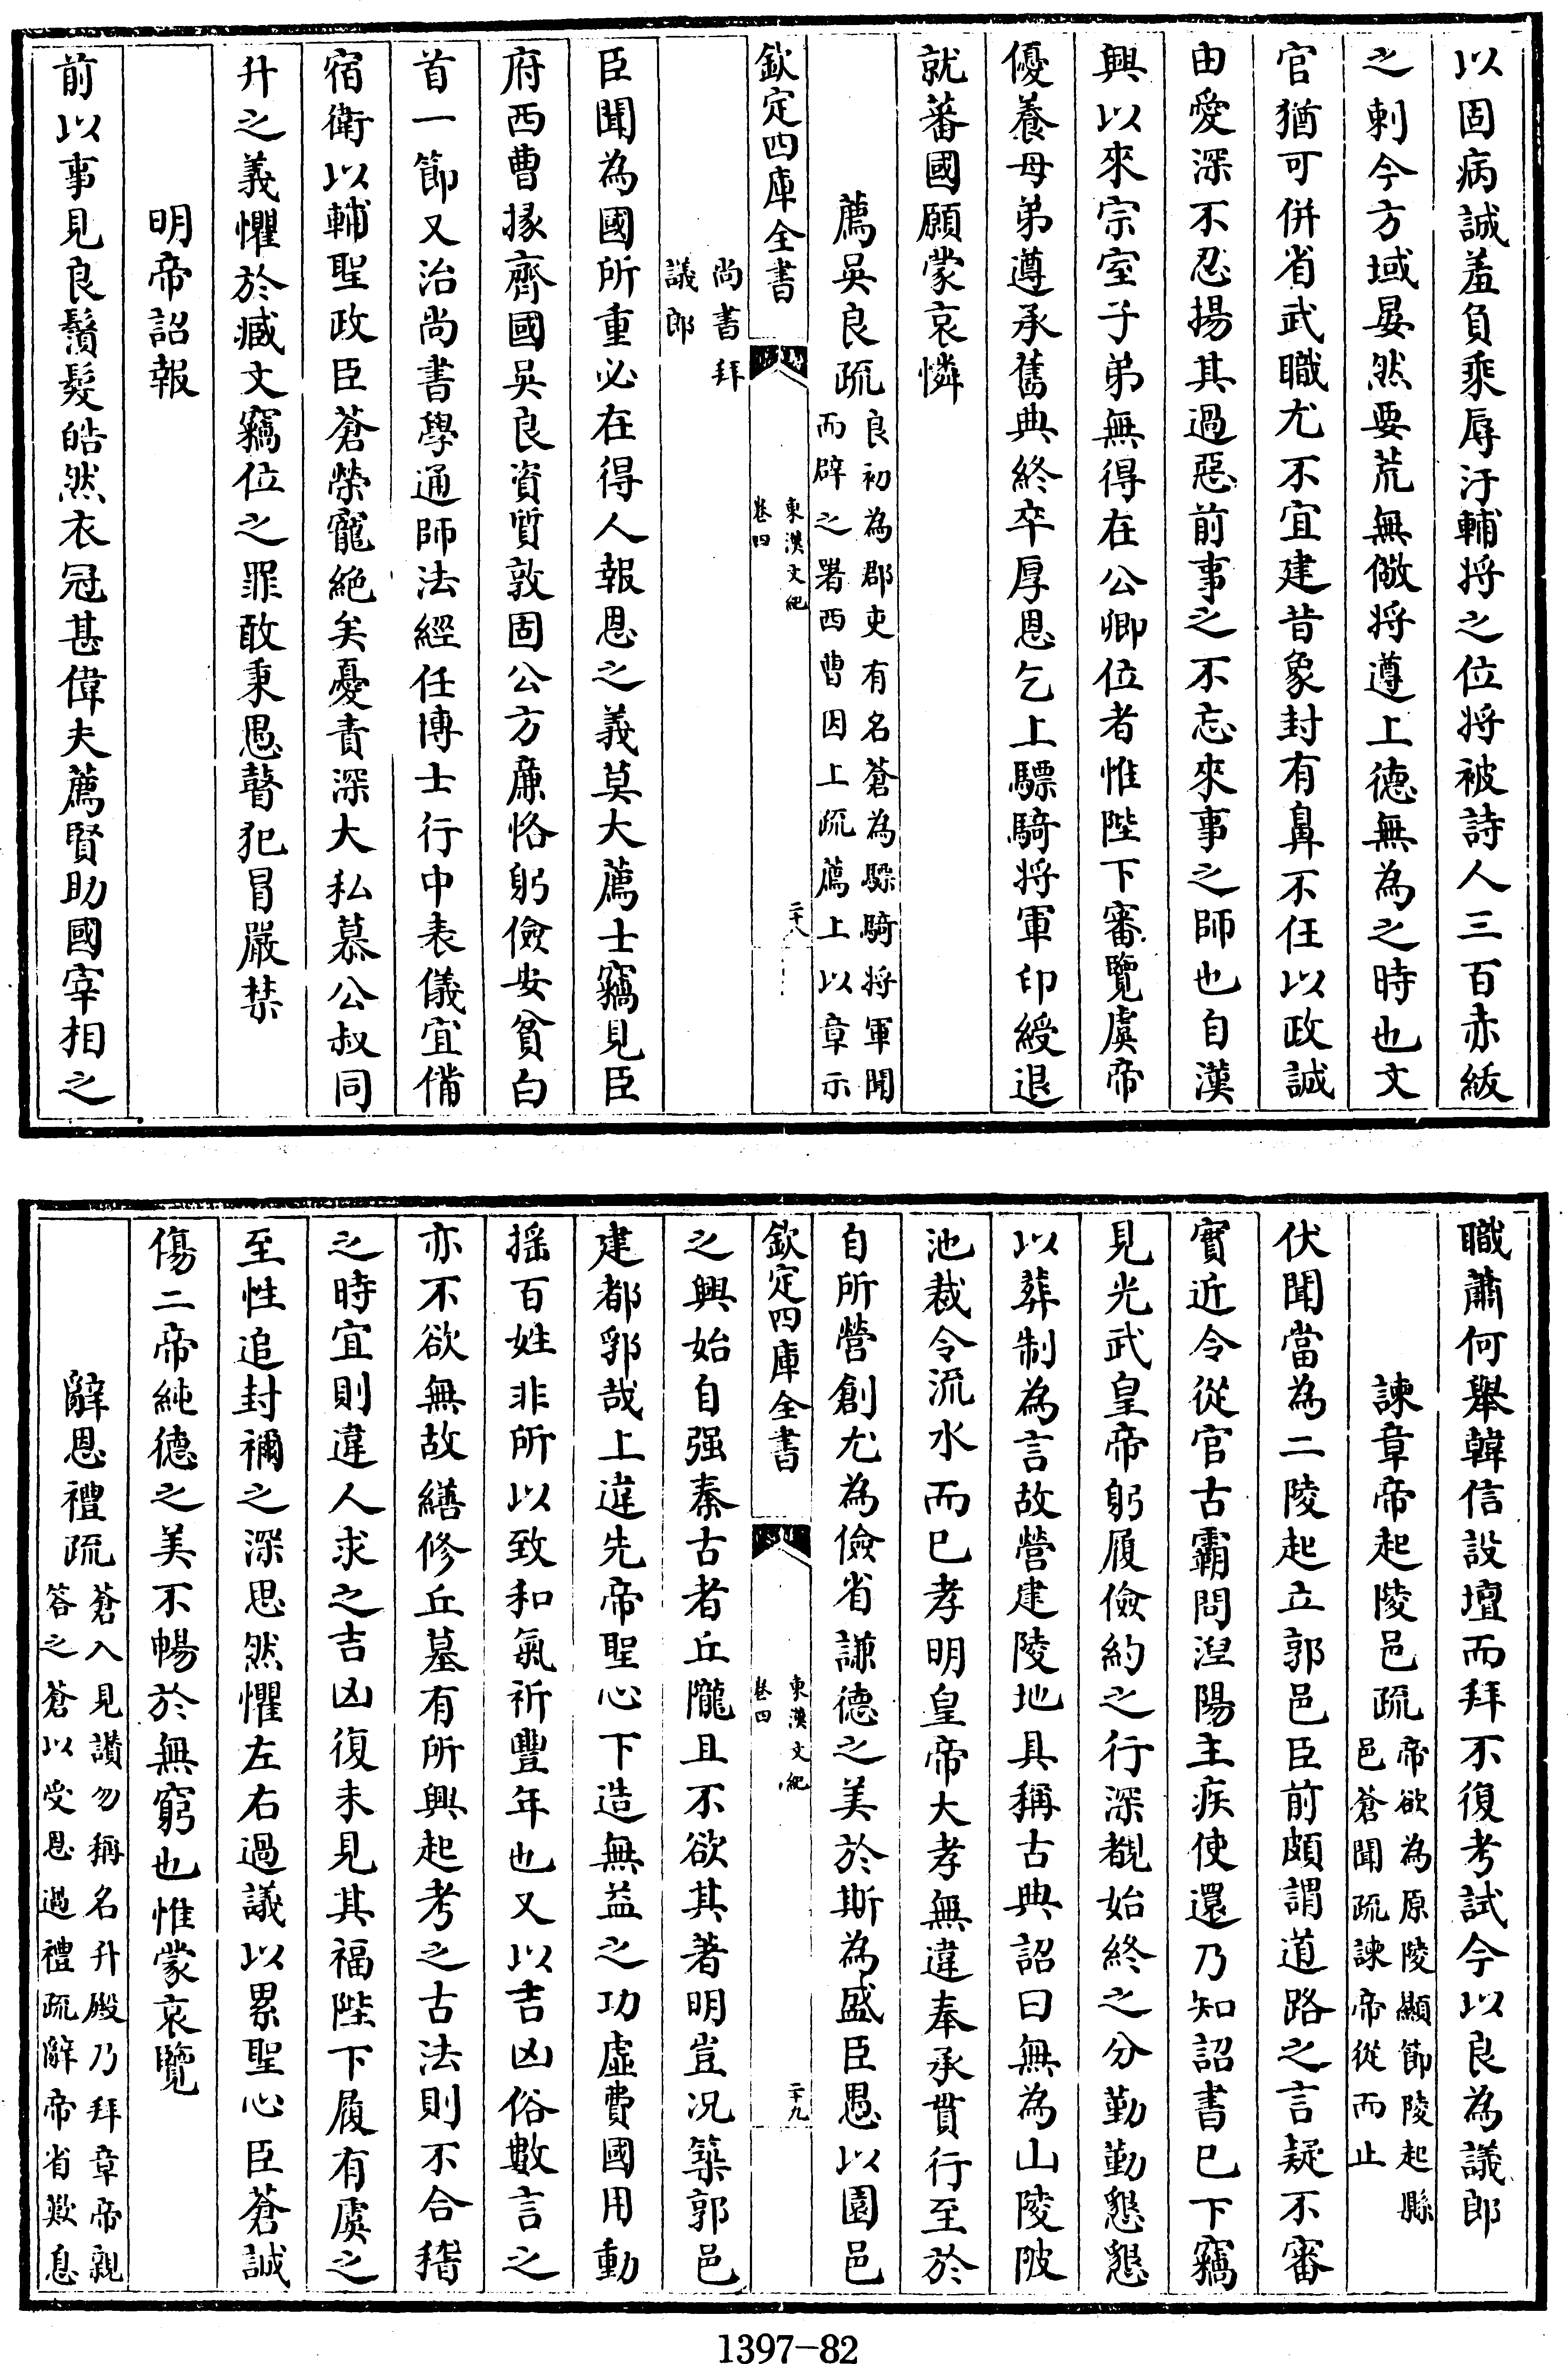 以固病誠羞負乘辱汙輔將之位將被詩人三百赤紱
之刺今方域晏然要荒無儆將遵上德無為之時也文
官猶可併省武職尤不宜建昔象封有鼻不任以政誠
由愛深不忍揚其過惡前事之不忘來事之師也自漢
興以來宗室子弟無得在公卿位者惟陛下審覽虞帝
優養母弟遵承舊典終卒厚恩乞上驃騎將軍印綬退
就蕃國願蒙哀憐
薦吳良疏良初為郡吏有名蒼為驃騎將軍聞
而辟之署西曹因上疏薦上以章示
欽定四庫全書
東漢文紀
卷四
二十八
尚書拜
議郎
臣聞為國所重必在得人報恩之義莫大薦士竊見臣
府西曹掾齊國吳良資質敦固公方廉恪躬儉安貧白
首一節又治尚書學通師法經任博士行中表儀宜備
宿衛以輔聖政臣蒼榮寵絕矣憂責深大私慕公叔同
升之義懼於臧文竊位之罪敢秉愚瞽犯冒嚴禁
明帝詔報
前以事見良鬚髮皓然衣冠甚偉夫薦賢助國宰相之
職蕭何舉韓信設壇而拜不復考試今以良為議郎
諫章帝起陵邑疏帝欲為原陵顯節陵起縣
邑蒼聞疏諫帝從而止
伏聞當為二陵起立郭邑臣前頗謂道路之言疑不審
實近令從官古霸問湼陽主疾使還乃知詔書已下竊
見光武皇帝躬履儉約之行深覩始終之分勤勤懇懇
以葬制為言故營建陵地具稱古典詔曰無為山陵陂
池裁令流水而已孝明皇帝大孝無違奉承貫行至於
自所營創尤為儉省謙德之美於斯為盛臣愚以園邑
欽定四庫全書
東漢文紀
卷四
二十九
之興始自强秦古者丘隴且不欲其著明豈況築郭邑
建都郛哉上違先帝聖心下造無益之功虛費國用動
搖百姓非所以致和氣祈豐年也又以吉凶俗數言之
亦不欲無故繕修丘墓有所興起考之古法則不合稽
之時宜則違人求之吉凶復未見其福陛下履有虞之
至性追封禰之深思然懼左右過議以累聖心臣蒼誠
傷二帝純德之美不暢於無窮也惟蒙哀覽
辭恩禮疏蒼入見讚勿稱名升殿乃拜章帝親
答之蒼以受恩過禮疏辭帝省歎息
1397-82